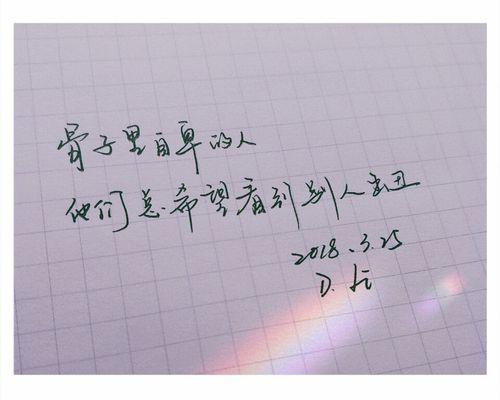 骨子里自卑的人
他们总希望看到别人出丑
2018.3.25
D.